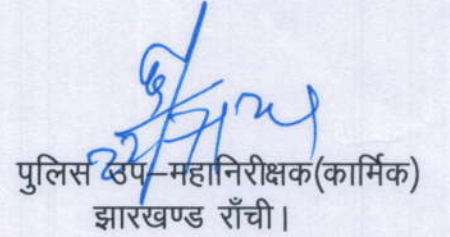 पुलिस उप–महानिरीक्षक(कार्मिक)
झारखण्ड राँची।